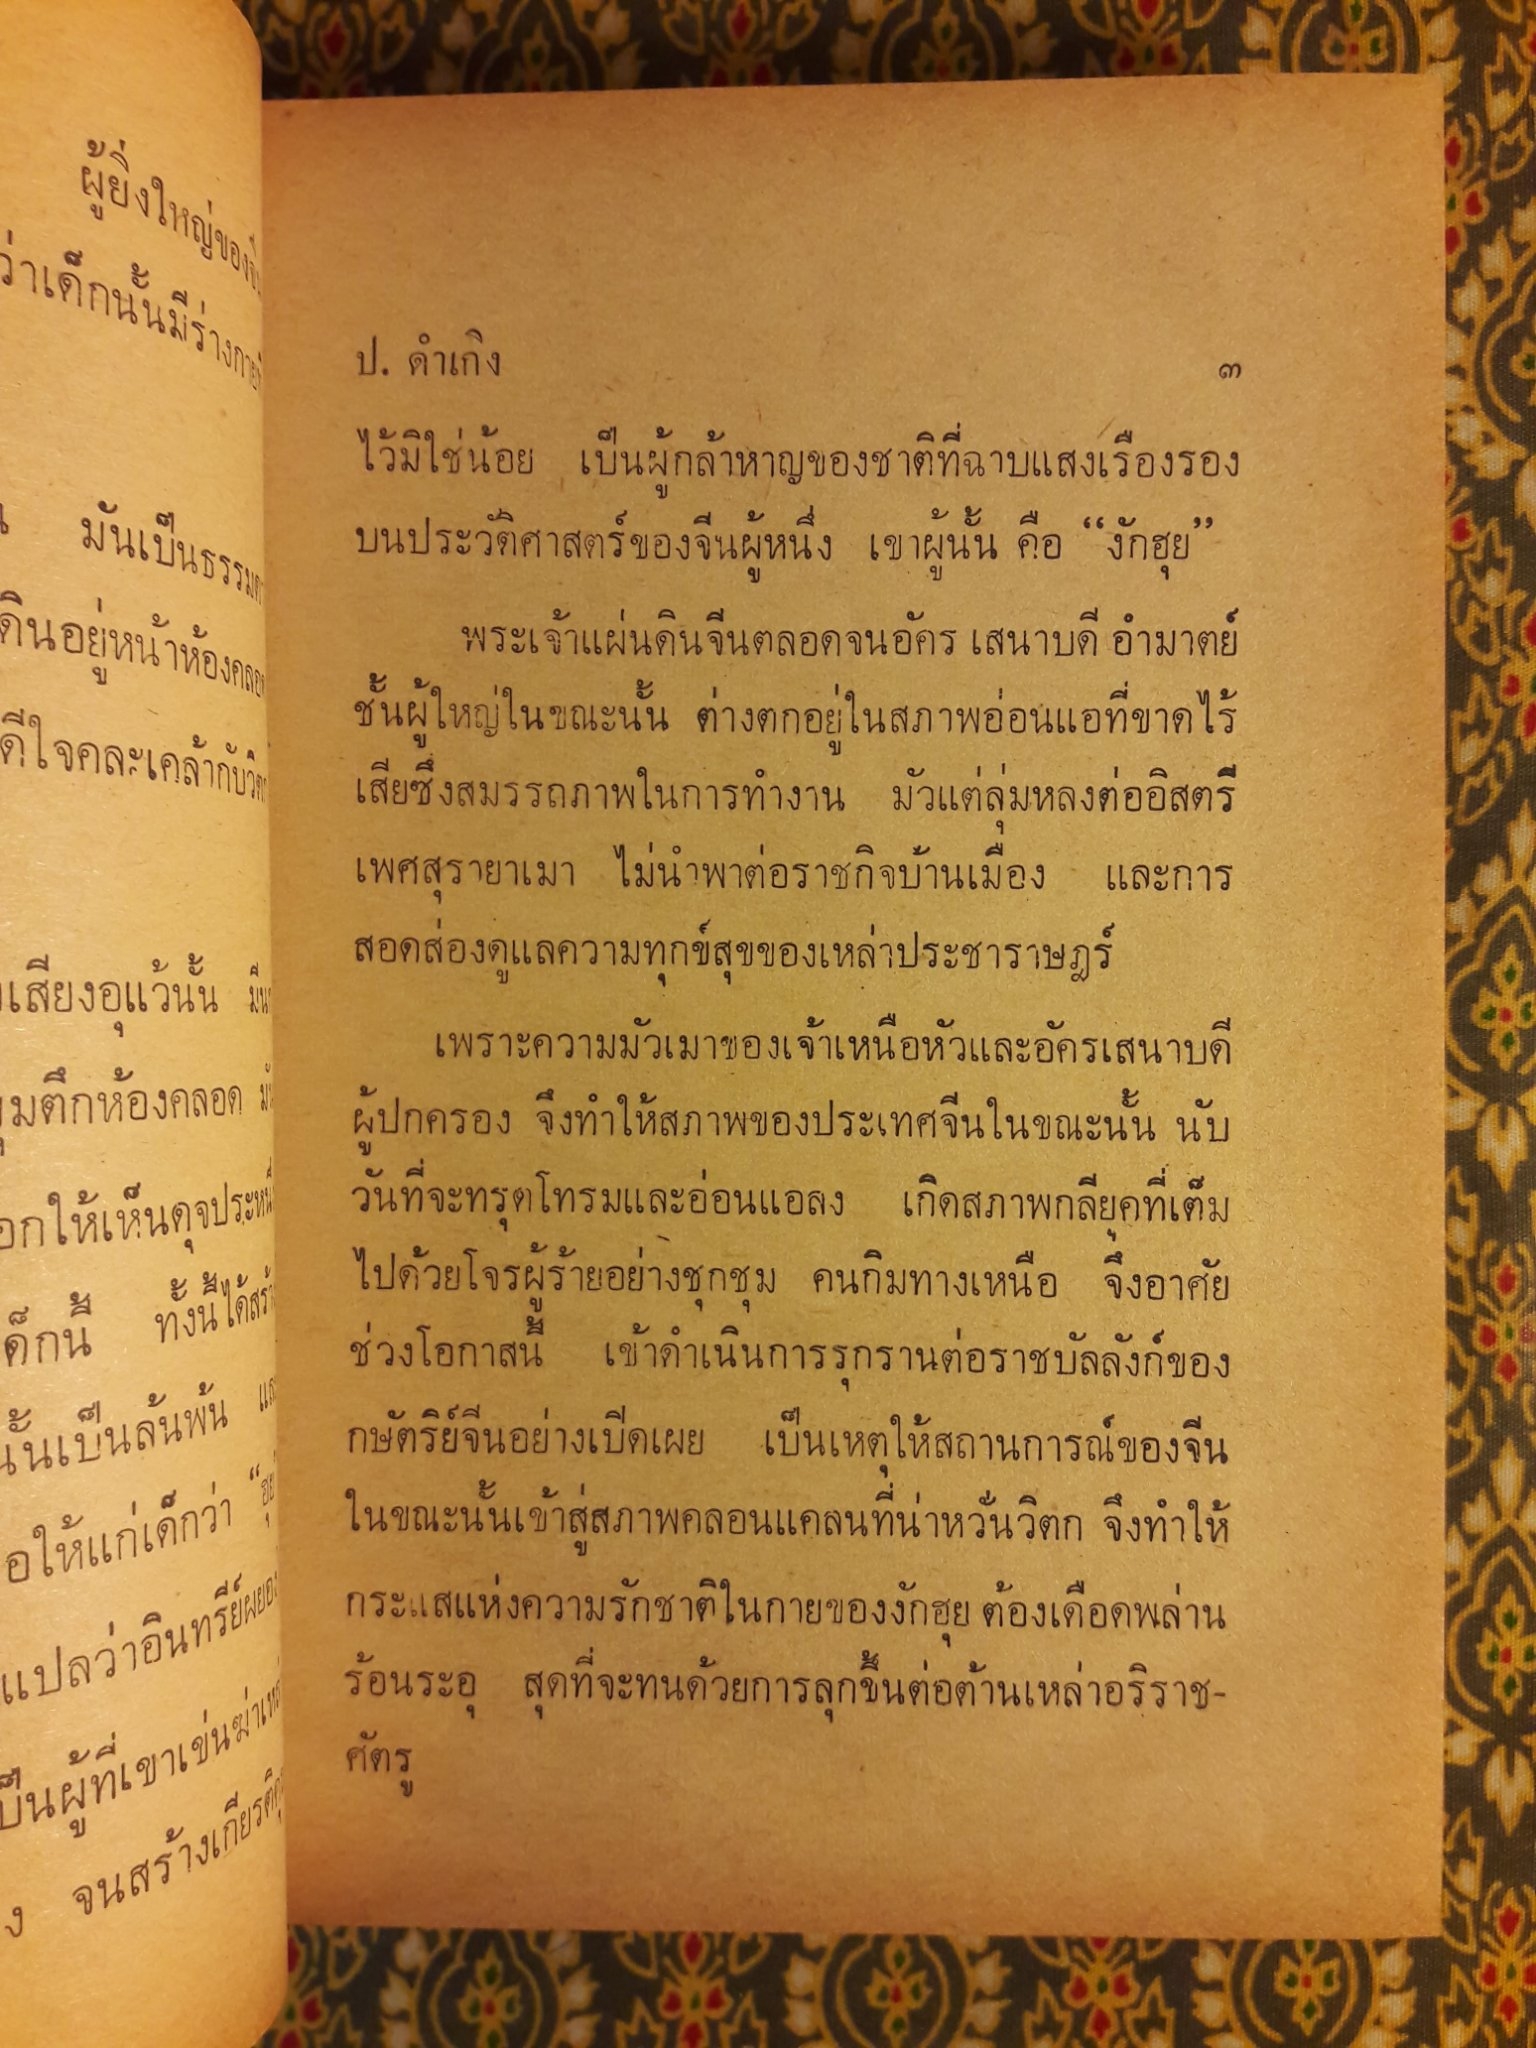 ผู้ยิ่งใหญ่ของจีน
ว่าเด็กนั้นมีร่างกาย
มันเป็นธรรมดา
ดินอยู่หน้าห้องคลอด
ดีใจคละเคล้ากับวิตก
เสียงอุแว้นั้น
มุมตึกห้องคลอด
ให้เห็นดุจประหนึ่ง
เด็กนี้ ทั้งนี้ได้สร้าง
นั้นเป็นล้นพ้น
ให้แก่เด็กว่า “ฮุย”
แปลว่าอินทรีย์ผยอง
เป็นผู้ที่เขาเข่นฆ่าเหล่า
จนสร้างเกียรติ
ป. ดำเกิง ๓
ไว้มิใช่น้อย เป็นผู้กล้าหาญของชาติที่ฉาบแสงเรืองรอง
บนประวัติศาสตร์ของจีนผู้หนึ่ง เขาผู้นั้น คือ “งักฮุย”
พระเจ้าแผ่นดินจีนตลอดจนอัคร เสนาบดี อำมาตย์
ชั้นผู้ใหญ่ในขณะนั้น ต่างตกอยู่ในสภาพอ่อนแอที่ขาดไร้
เสียซึ่งสมรรถภาพในการทำงาน มัวแต่ลุ่มหลงต่ออิสตรี
เพศสุรายาเมา ไม่นำพาต่อราชกิจบ้านเมือง และการ
สอดส่องดูแลความทุกข์สุขของเหล่าประชาราษฎร์
เพราะความมัวเมาของเจ้าเหนือหัวและอัครเสนาบดี
ผู้ปกครอง จึงทำให้สภาพของประเทศจีนในขณะนั้น นับ
วันที่จะทรุดโทรมและอ่อนแอลง เกิดสภาพกลียุคที่เต็ม
ไปด้วยโจรผู้ร้ายอย่างชุกชุม คนกิมทางเหนือ จึงอาศัย
ช่วงโอกาสนี้ เข้าดำเนินการรุกรานต่อราชบัลลังก์ของ
กษัตริย์จีนอย่างเปิดเผย เป็นเหตุให้สถานการณ์ของจีน
ในขณะนั้นเข้าสู่สภาพคลอนแคลนที่น่าหวั่นวิตก จึงทำให้
กระแสแห่งความรักชาติในกายของงักฮุย ต้องเดือดพล่าน
ร้อนระอุ สุดที่จะทนด้วยการลุกขึ้นต่อต้านเหล่าอริราช-
ศัตรู